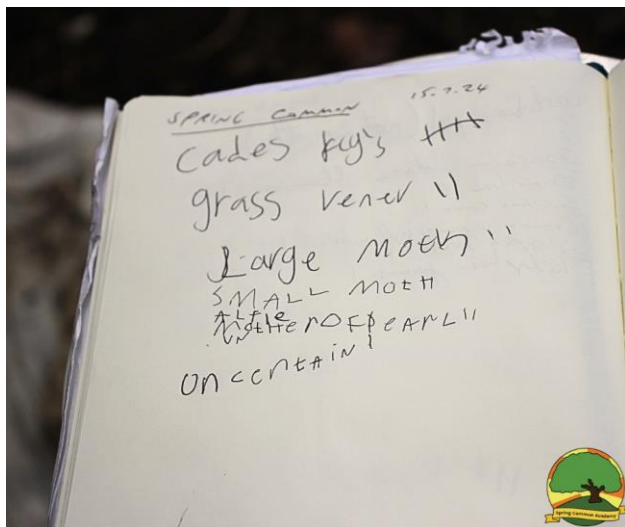 SPRING COMMON 15.7.24
cades fly's
grass vener 11
Large Moth 11
SMALL MOTH
MotHEROFpEARL 11
UncentAiN 1
Spring Common Academy